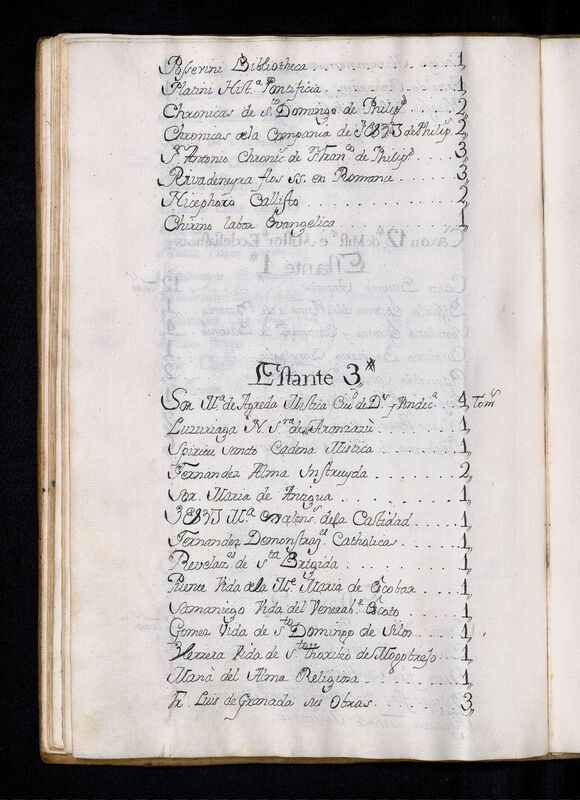 Posserini Bibliotheca . . . . . . . . . . . . . . 1,,
Platini Hist.ª Pontificia . . . . . . . . . . . . 1,,
Chronicas de S.to Domingo de Philip.s 2,,
Chronicas de la Compania de JESVS de Philip. 2,,
S.n Antonio Chronic.s de Fran.co de Philip.s . . . 3,,
Rivadeneyra flos SS. en Romance . . . . . 3,,
Nicephoro Callisto . . . . . . . . . . . . . . . 2,,
Chirino labor Evangelica . . . . . . . . . . . 1,,
Estante 3º
Sor M.ª de Agreda Mistica Ciu.d de D.s y Vindic.ª . 4,, Tom.s
Luzuriaga N. Sra de Aranzazù . . . . . . 1,,
Spiritu Santo Cadena Mistica . . . . . . . 1,,
Fernandez Alma Instruyda . . . . . . . . 2,,
Sor. Maria de Antigua . . . . . . . . . . . 1,,
JESVS M.ª de la Castidad . . . . . 1,,
Fernandez Demonstraz.s Catholicas . . . . . 1,,
Revelaz.s de S.ta Brigida . . . . . . . . . . 1,,
Puente Vida de la M.e Maria de Escobar . . . 1,,
Samaniego Vida del Venerab.e Escoto . . . 1,,
Gomez Vida de S.to Domingo de Silos . . . 1,,
Herrera Vida de S.to Thoribio de Mogobrejo . . 1,,
Manà del Alma Religiosa . . . . . . . . 1,,
Fr. Luis de Granada sus Obras . . . . . . . . 3,,